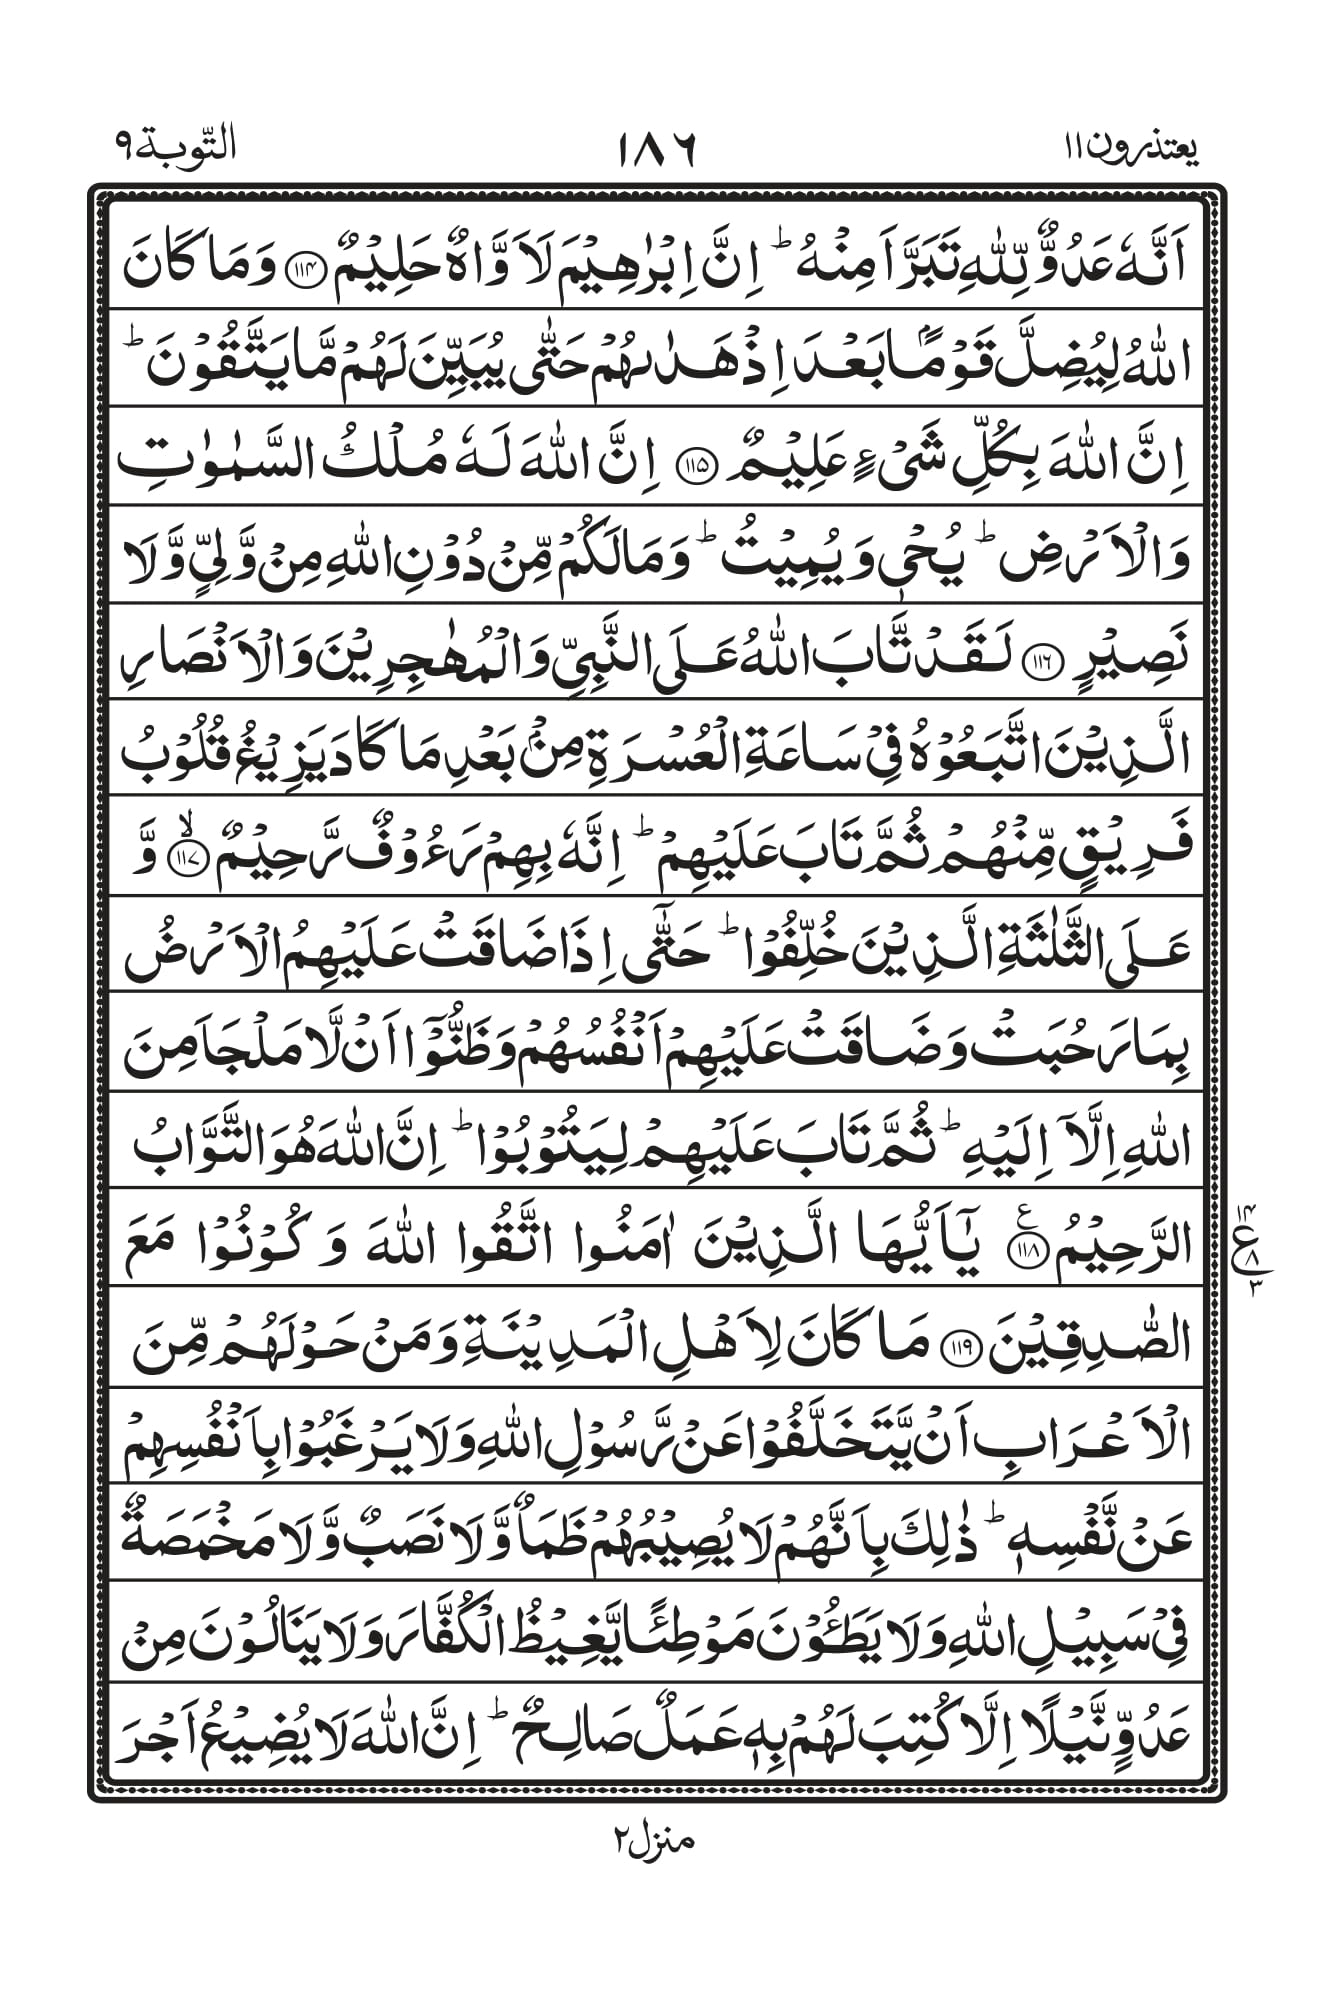 یعتذرون ۱۱
۱۸۶
التّوبة ۹
اَنَّهٗ عَدُوٌّ لِّلّٰهِ تَبَرَّاَ مِنْهُ ؕ اِنَّ اِبْرٰهِیْمَ لَاَوَّاهٌ حَلِیْمٌ ﴿۱۱۴﴾ وَمَا كَانَ
اللّٰهُ لِیُضِلَّ قَوْمًۢا بَعْدَ اِذْ هَدٰىهُمْ حَتّٰى یُبَیِّنَ لَهُمْ مَّا یَتَّقُوْنَ ؕ
اِنَّ اللّٰهَ بِكُلِّ شَیْءٍ عَلِیْمٌ ﴿۱۱۵﴾ اِنَّ اللّٰهَ لَهٗ مُلْكُ السَّمٰوٰتِ
وَالْاَرْضِ ؕ یُحْیٖ وَیُمِیْتُ ؕ وَمَا لَكُمْ مِّنْ دُوْنِ اللّٰهِ مِنْ وَّلِیٍّ وَّلَا
نَصِیْرٍ ﴿۱۱۶﴾ لَقَدْ تَّابَ اللّٰهُ عَلَى النَّبِیِّ وَالْمُهٰجِرِیْنَ وَالْاَنْصَارِ
الَّذِیْنَ اتَّبَعُوْهُ فِیْ سَاعَةِ الْعُسْرَةِ مِنْۢ بَعْدِ مَا كَادَ یَزِیْغُ قُلُوْبُ
فَرِیْقٍ مِّنْهُمْ ثُمَّ تَابَ عَلَیْهِمْ ؕ اِنَّهٗ بِهِمْ رَءُوْفٌ رَّحِیْمٌ ﴿۱۱۷﴾ۙ وَّ
عَلَى الثَّلٰثَةِ الَّذِیْنَ خُلِّفُوْا ؕ حَتّٰۤى اِذَا ضَاقَتْ عَلَیْهِمُ الْاَرْضُ
بِمَا رَحُبَتْ وَضَاقَتْ عَلَیْهِمْ اَنْفُسُهُمْ وَظَنُّوْۤا اَنْ لَّا مَلْجَاَ مِنَ
اللّٰهِ اِلَّاۤ اِلَیْهِ ؕ ثُمَّ تَابَ عَلَیْهِمْ لِیَتُوْبُوْا ؕ اِنَّ اللّٰهَ هُوَ التَّوَّابُ
الرَّحِیْمُ ﴿۱۱۸﴾ع یٰۤاَیُّهَا الَّذِیْنَ اٰمَنُوا اتَّقُوا اللّٰهَ وَكُوْنُوْا مَعَ
۱۴
ع
۸
۳
الصّٰدِقِیْنَ ﴿۱۱۹﴾ مَا كَانَ لِاَهْلِ الْمَدِیْنَةِ وَمَنْ حَوْلَهُمْ مِّنَ
الْاَعْرَابِ اَنْ یَّتَخَلَّفُوْا عَنْ رَّسُوْلِ اللّٰهِ وَلَا یَرْغَبُوْا بِاَنْفُسِهِمْ
عَنْ نَّفْسِهٖ ؕ ذٰلِكَ بِاَنَّهُمْ لَا یُصِیْبُهُمْ ظَمَاٌ وَّلَا نَصَبٌ وَّلَا مَخْمَصَةٌ
فِیْ سَبِیْلِ اللّٰهِ وَلَا یَطَـُٔوْنَ مَوْطِئًا یَّغِیْظُ الْكُفَّارَ وَلَا یَنَالُوْنَ مِنْ
عَدُوٍّ نَّیْلًا اِلَّا كُتِبَ لَهُمْ بِهٖ عَمَلٌ صَالِحٌ ؕ اِنَّ اللّٰهَ لَا یُضِیْعُ اَجْرَ
منزل ۲